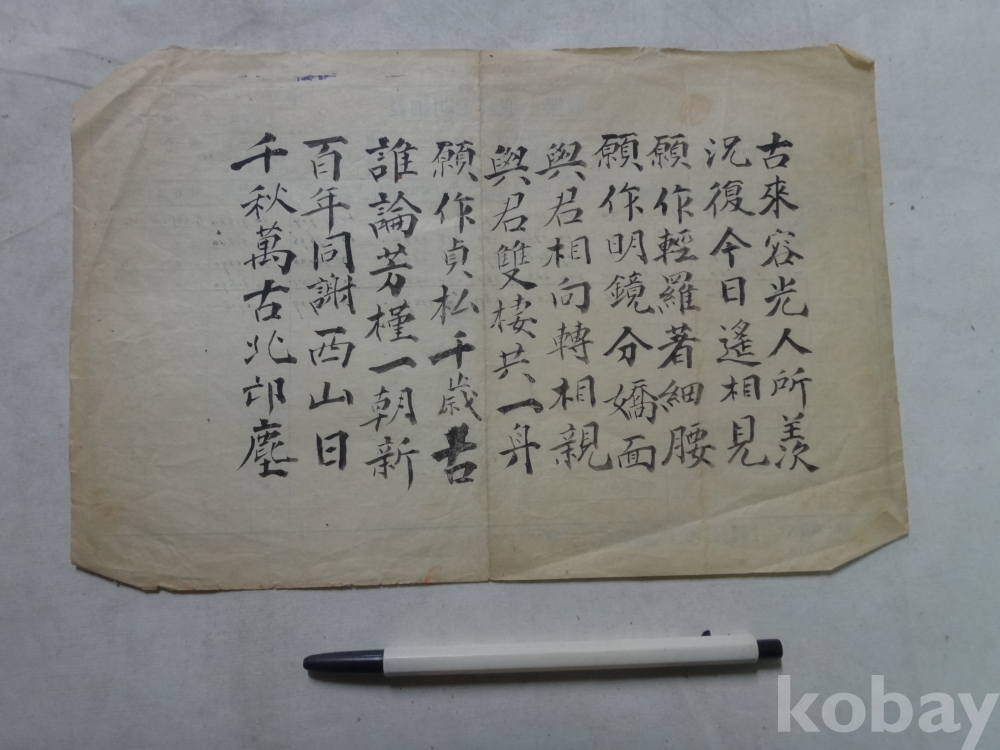 古來容光人所羨
況復今日遙相見
願作輕羅著細腰
願作明鏡分嬌面
與君相向轉相親
與君雙棲共一身
願作貞松千歲古
誰論芳槿一朝新
百年同謝西山日
千秋萬古北邙塵
kobay